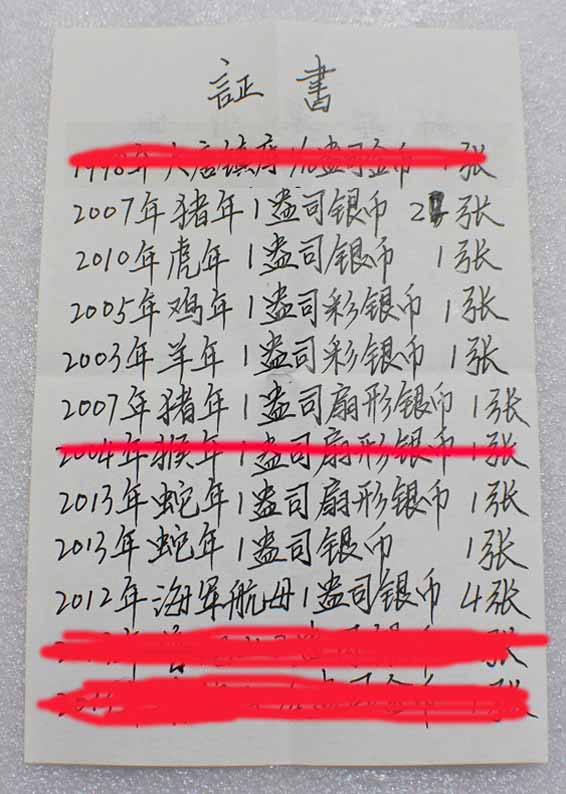 証書
1998年大唐镇库 盎司金币 1张
2007年猪年1盎司银币 2张
2010年虎年1盎司银币 1张
2005年鸡年1盎司彩银币1张
2003年羊年1盎司彩银币1张
2007年猪年1盎司扇形银币1张
2004年猴年1盎司扇形银币1张
2013年蛇年1盎司扇形银币1张
2013年蛇年1盎司银币 1张
2012年海军航母1盎司银币4张
张
张